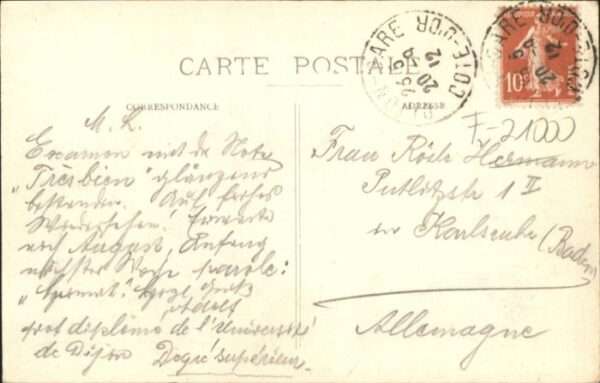 CARTE POSTALE
CORRESPONDANCE
ADRESSE
GARE
COTE-D'OR
10c
F-21000
M. L.
Examen mit der Note
"Tres bien" glänzend
bestanden. Auf frohes
Wiedersehen! Erwarte
noch August, Anfang
nächster Woche parole:
"Heimat."
diplômé de l'Université
de Dijon Degré supérieur.
Frau Röck Hermann
Putlitzstr 1 II
in Karlsruhe (Baden)
Allemagne